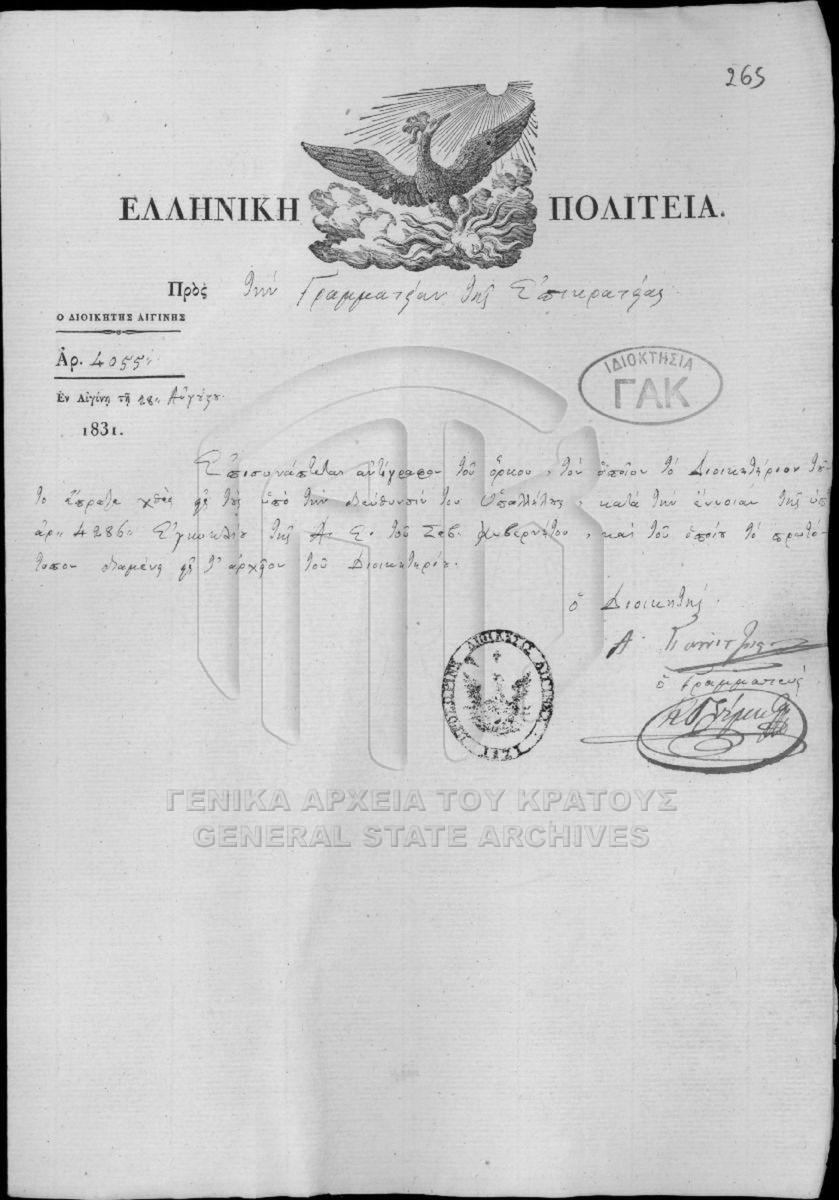 265
ΕΛΛΗΝΙΚΗ ΠΟΛΙΤΕΙΑ.
Πρὸς τὴν Γραμματείαν τῆς Ἐπικρατείας
Ο ΔΙΟΙΚΗΤΗΣ ΑΙΓΙΝΗΣ
Ἀρ. 4055
Ἐν Αἰγίνῃ τῇ 28 Αὐγούστου
1831.
ΙΔΙΟΚΤΗΣΙΑ
ΓΑΚ
Ἐπισυνάπτεται ἀντίγραφον τοῦ ὅρκου, τὸν ὁποῖον τὸ Διοικητήριον
τὸ ἔπραξε χθὲς καὶ τῆς ὑπὸ τὴν διεύθυνσίν του, κατὰ τὴν ἔννοιαν τῆς ὑπ
ἀρ 4286 Ἐγκυκλίου τῆς Α. Ε. τοῦ Σεβ. Κυβερνήτου, καὶ τοῦ ὁποίου τὸ πρωτό-
τυπον διαμένει εἰς τ' ἀρχεῖον τοῦ Διοικητηρίου.
ὁ Διοικητής
Α.
ὁ Γραμματεύς
ΠΡΟΣΩΡΙΝΗ ΔΙΟΙΚΗΣΙΣ ΑΙΓΙΝΗΣ
ΓΕΝΙΚΑ ΑΡΧΕΙΑ ΤΟΥ ΚΡΑΤΟΥΣ
GENERAL STATE ARCHIVES